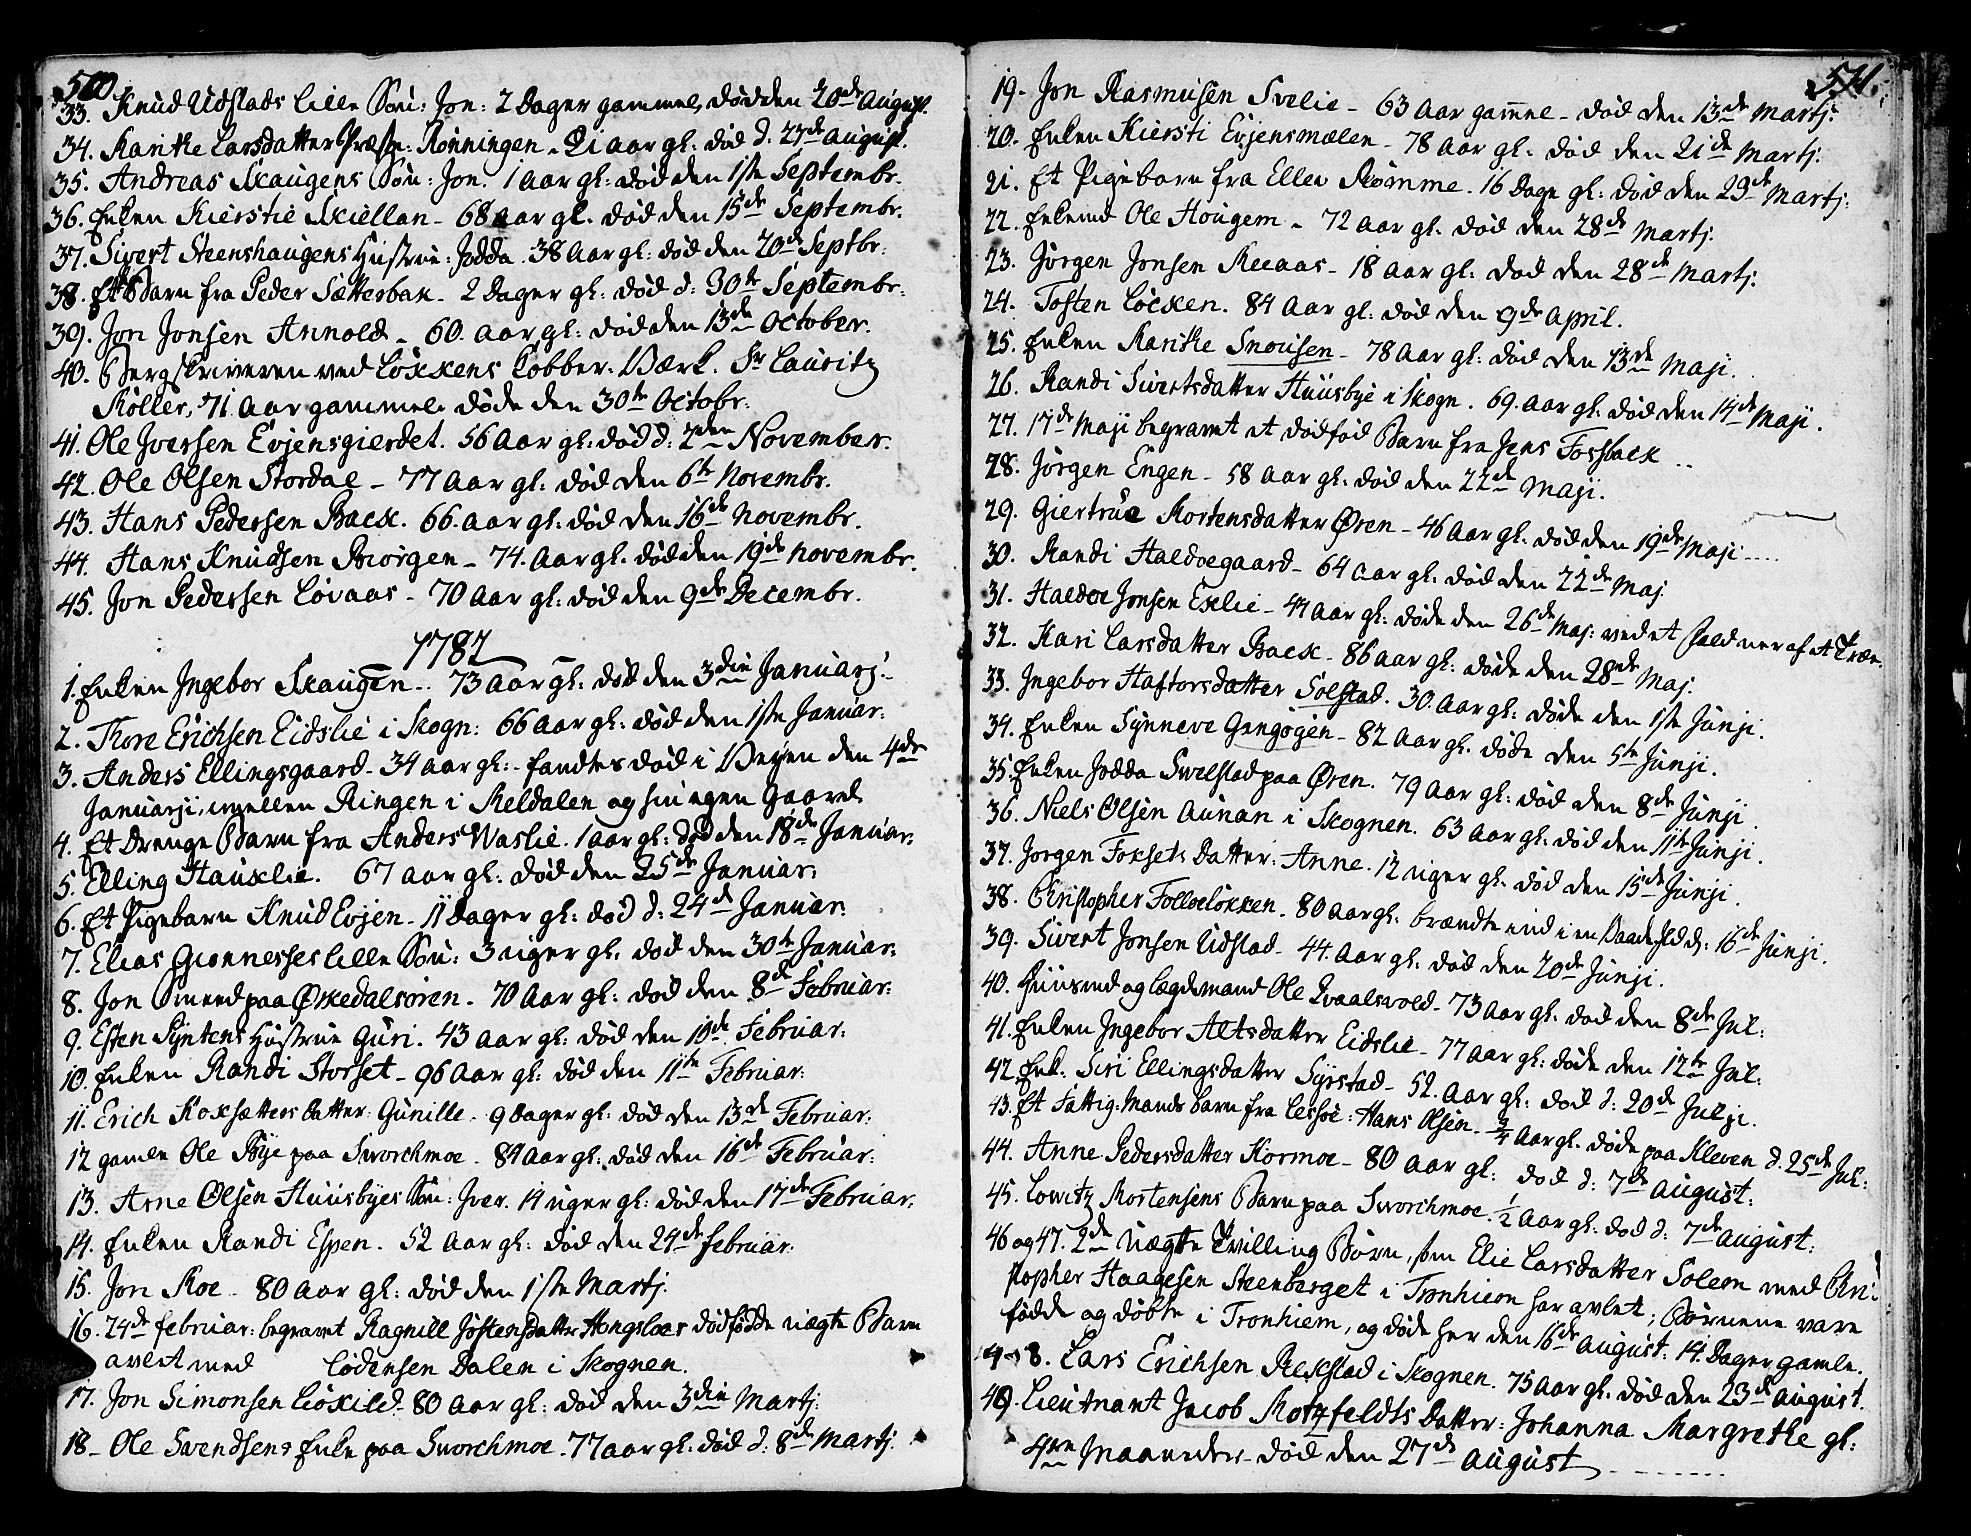 510
33. Knud Udstads lille Søn: Jon: 2 Dager gammel, død den 20de August.
34. Marithe Larsdatter Præste-Rønningen - 21 aar gl: død d: 27de August.
35. Andreas Skaugens Søn: Jon. 1 aar gl: død den 1ste Septembr.
36. Enken Kierstie Skiellan - 68 aar gl. død den 15de Septembr.
37. Sivert Steenshaugens Hustrue: Jødda. 38 Aar gl: død den 20de Septbr:
38. Et Barn fra Peder Sætterbak - 2 Dager gl: død d: 30te Septembr:
39. Jon Jonsen Annold - 60. aar gl: død den 13de October.
40. Bergskriveren ved Løkkens Kobber-Værk. Sr Lauritz
Møller, 71 Aar gammel. døde den 30te Octobr:
41. Ole Iversen Evjensgierdet. 56 Aar gl: død d: 2den November.
42. Ole Olsen Stordal - 77 aar gl: død den 6te Novembr.
43. Hans Pedersen Back. 66. aar gl: død den 16de Novembr.
44. Hans Knudsen Biørgen - 74. Aar gl: død den 19de Novembr.
45. Jon Pedersen Løvaas - 70 Aar gl: død den 9de Decembr.
1787
1. Enken Ingebor Skaugen - 73 aar gl: død den 3die Januarj:
2. Thore Erichsen Eidslie i Skogn: 66 aar gl: død den 1ste Januar:
3. Anders Ellingsgaard - 34 aar gl: - fandtes død i Veyen den 4de
Januarji, mellem Ringen i Meldalen og sin egen Gaard.
4. Et Drenge Barn fra Anders Waslie. 1 aar gl: død den 18de Januar:
5. Elling Hauklie. 67 aar gl: død den 25de Januar:
6. Et Pigebarn Knud Evjen - 11 Dager gl: død d: 24de Januar:
7. Elias Giønnesses lille Søn: 3 uger gl. død den 30te Januar:
8. Jon Smed paa Ørkedalsøren - 70 Aar gl: død den 8de Februar:
9. Esten Hustrue Guri. 43 aar gl: død den Februar:
10. Enken Randi Storset - 96 Aar gl: død den 11te Februar:
11. Erich Koksætters Datter: Gunille - 9 Dager gl: død den 13de Februar:
12 gamle Ole Bye paa Sworchmoe - 84 Aar gl: død den 16de Februar:
13. Arne Olsen Huusbyes Søn: Iver. 14 uger gl: død den 17de Februar:
14. Enken Randi Espen. 52 Aar gl: død den 24de Februar:
15. Jon Moe - 80 Aar gl: død den 1ste Martj.
16. 24de Februar: begravet Ragnill Jøstensdatter dødfødde uægte Barn
avlet med Lødensen Dalen i Skognen.
17. Jon Simonsen Liøkild. 80 Aar gl: død den 3die Martj:
18 - Ole Svendsens Enke paa Sworchmoe. 77 aar gl: død d: 8de Martj.
511.
19. Jon Rasmusen Svelie - 63 Aar gamle - død den 13de Martj:
20. Enken Kiersti Evjensmælen - 78 Aar gl: død den 21de Martj:
21. Et Pigebarn fra Ellev Skomme. 16 Dage gl: død den 29de Martj:
22. Enkemd Ole Hougem - 72 Aar gl. død den 28de Martj.
23. Jørgen Jonsen Reeaas - 18 aar gl: død den 28de Martj:
24. Tosten Løcken. 84 Aar gl: død den 9de April.
25. Enken Marithe Snousen - 78 Aar gl: død den 13de Maji.
26. Randi Sivertsdatter Huusbye i Skogn. 69. Aar gl: død den 14de Maji.
27. 17de Maji begravet et dødfød Barn fra Jens Fossback ..
28. Jørgen Engen - 58 Aar gl: død den 22de Maji.
29. Giertrue Mortensdatter Øren - 46 Aar gl: død den 19de Maji ....
30. Randi Haldoegaard - 64 aar gl: død den 22de Maj
31. Haldoe Jonsen Eeklie - 44 aar gl: døde den 26de Maj: ved et Fald ner af et Træe.
32. Kari Larsdatter Back - 86 aar gl: døde den 28de Maj.
33. Ingebor Haftorsdatter Solstad. 30. Aar gl: døde den 1ste Junji.
34. Enken Synneve Gangøgen - 82 Aar gl: døde den 5te Junji.
35. Enken Jødda Swelstad paa Øren. 79 aar gl: død den 8de Junji.
36. Niels Olsen Aunan i Skognen. 63 Aar gl: død den 11te Junji.
37. Jørgen Foxsets Datter: Anne. 12 uger gl: død den 15de Junji.
38. Christopher Tolløeløkken. 80 aar gl: brændte ind i en Vaade Ild d: 16de Junji.
39. Sivert Jonsen Udstad - 44. Aar gl: død den 20de Junji.
40. Huusmd og Lægdemand Ole Qvaalsvold - 73 Aar gl. død den 8de Jul:
41. Enken Ingebor Altsdatter Eidslie - 77 Aar gl: døde den 12te Jul:
42. Enk. Siri Ellingsdatter Syrstad - 52. Aar gl: død d: 20de Julji.
43. Et Fattig-Mands Barn fra Lessøe: Hans Olsen - 3/4 Aar gl. døde paa Kleven d. 25de Jul:
44. Anne Pedersdatter Kormoe - 80 Aar gl: død d: 7de August:
45. Lowitz Mortensens Barn paa Sworchmoe. 1/2 Aar gl: død d: 7de August:
46 og 47. 2de uægte Tvilling Børn, som Elie Larsdatter Solem med Chri-
stopher Haagesen Steenberget i Tronhiem har avlet; Børnene vare
fødde og døbte i Tronhiem, og døde her den 16de August: 14. Dager gamle.
48. Lars Erichsen Rekstad i Skognen. 75 Aar gl. død den 23de August.
49. Lieutnant Jacob Motzfeldts Datter: Johanna Margrethe gl:
4re Maaneder - død den 27de August